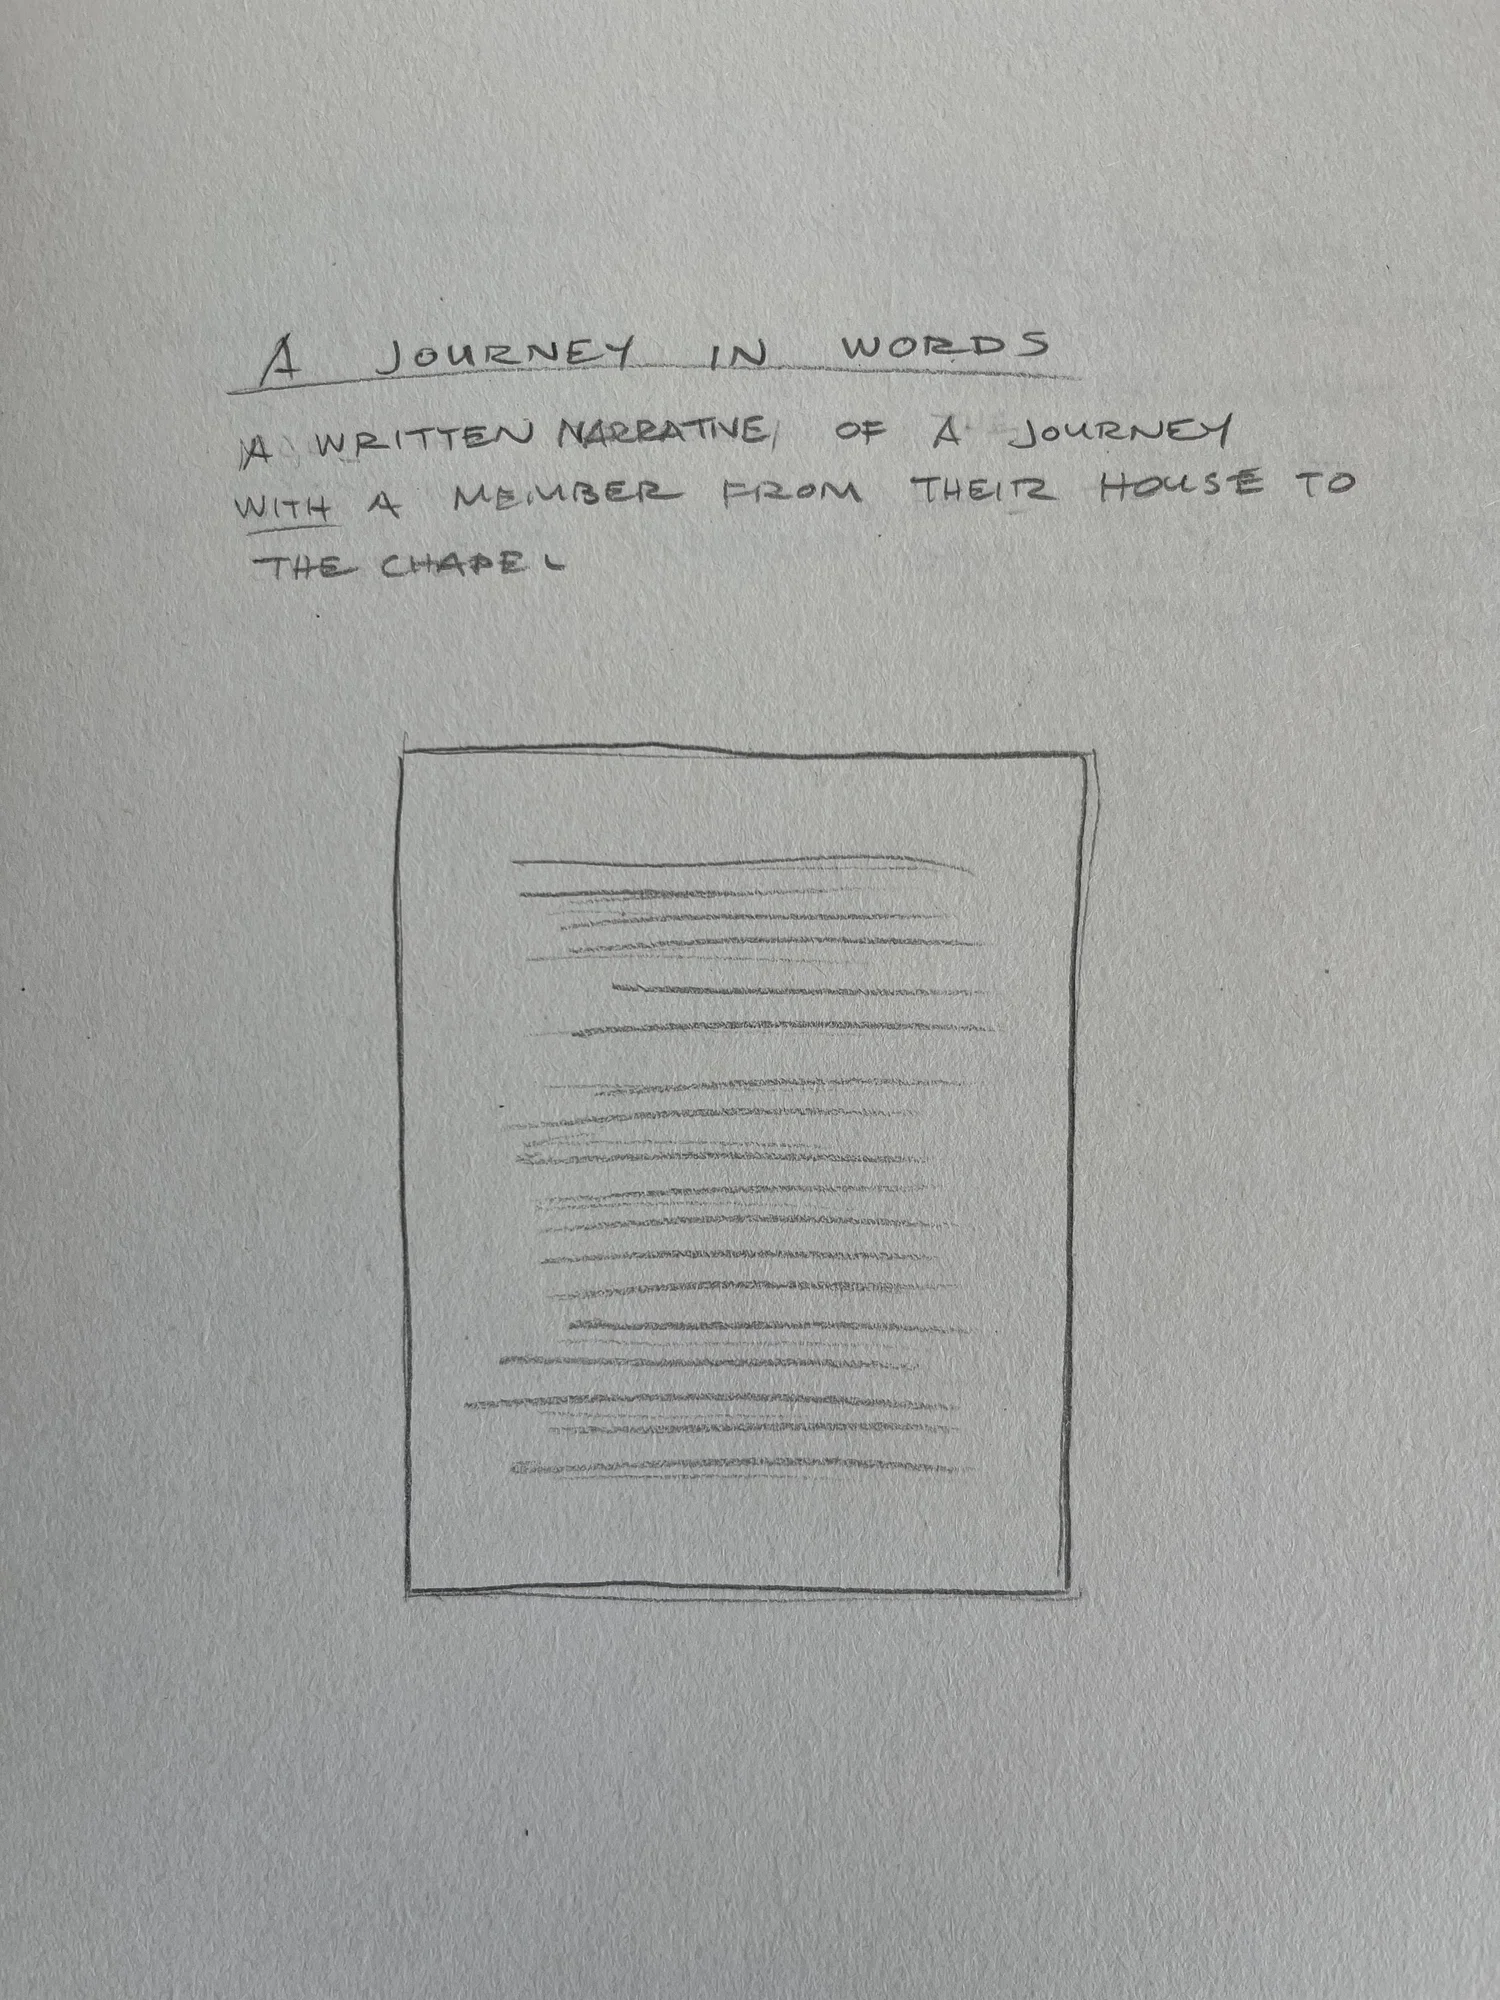 A JOURNEY IN WORDS
A WRITTEN NARRATIVE, OF A JOURNEY
WITH A MEMBER FROM THEIR HOUSE TO
THE CHAPEL